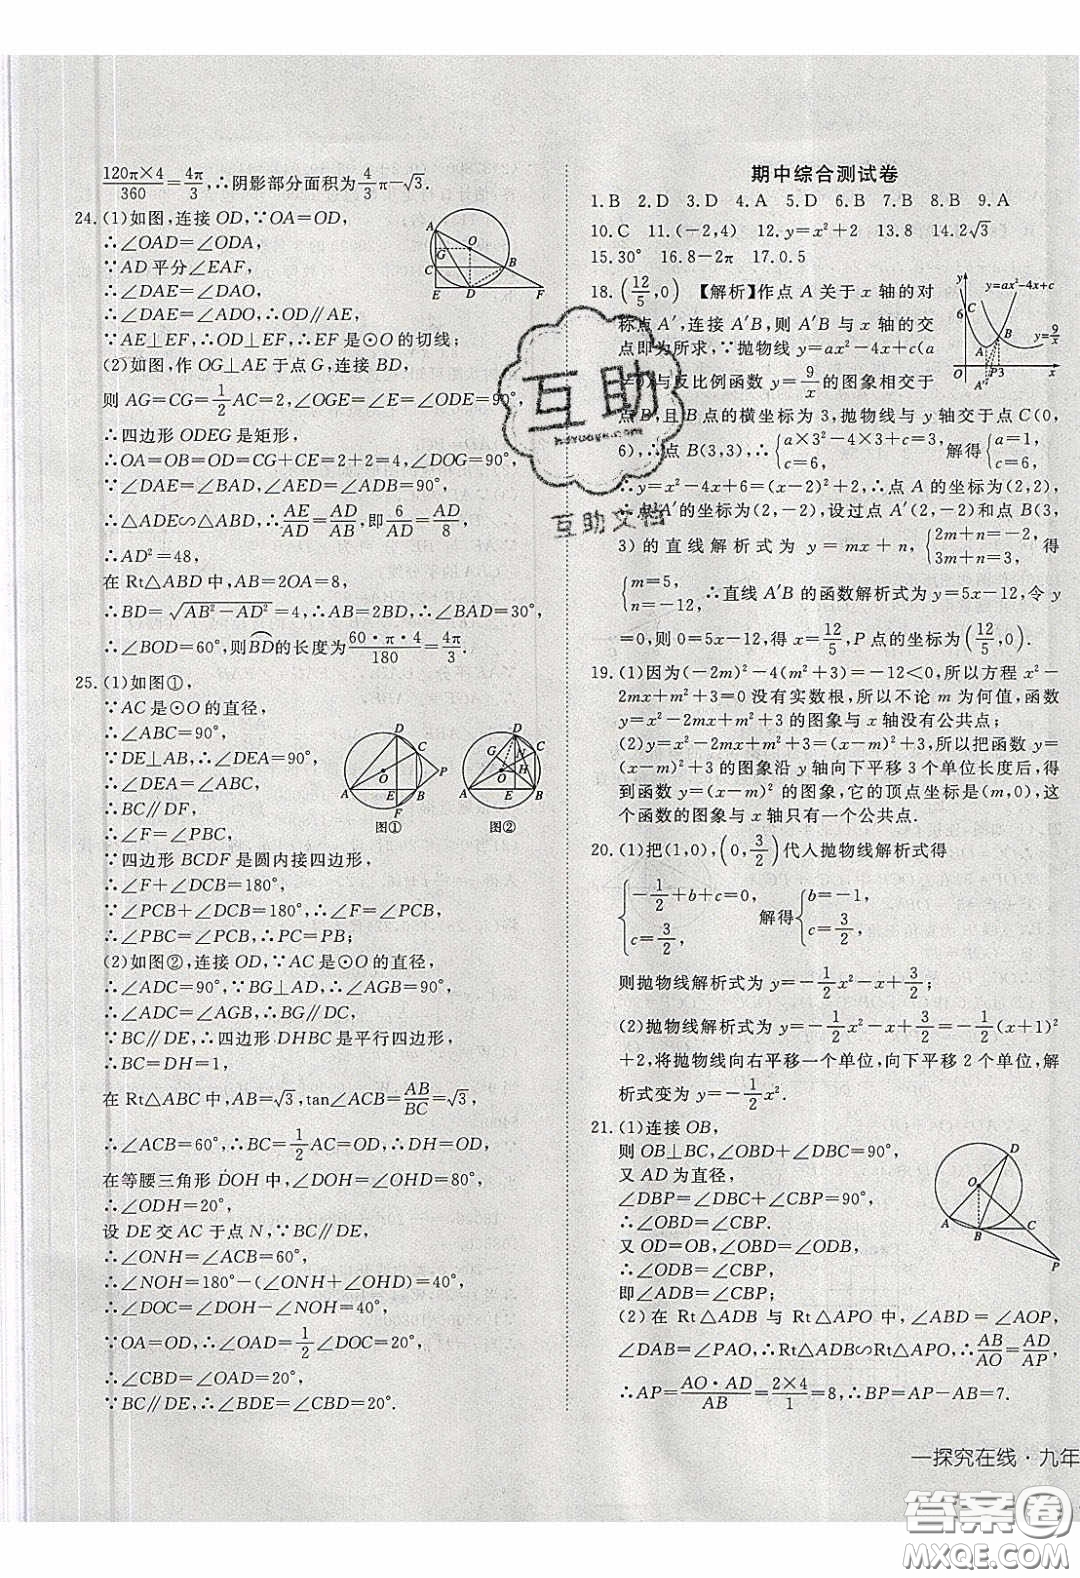 120π×4/360=4π/3,∴阴影部分面积为4/3π-√3.
24.(1)如图,连接OD,∵OA=OD,
∴∠OAD=∠ODA,
∵AD平分∠EAF,
∴∠DAE=∠DAO,
∴∠DAE=∠ADO,∴OD∥AE,
∵AE⊥EF,∴OD⊥EF,∴EF是⊙O的切线;
(2)如图,作OG⊥AE于点G,连接BD,
则AG=CG=1/2AC=2,∠OGE=∠E=∠ODE=90°,
∴四边形ODEG是矩形,
∴OA=OB=OD=CG+CE=2+2=4,∠DOG=90°,
∵∠DAE=∠BAD,∠AED=∠ADB=90°,
∴△ADE∽△ABD,∴AE/AD=AD/AB,即6/AD=AD/8,
∴AD²=48,
在Rt△ABD中,AB=2OA=8,
∴BD=√(AB²-AD²)=4,∴AB=2BD,∴∠BAD=30°,
∴∠BOD=60°,则BD的长度为60·π·4/180=4π/3.
25.(1)如图①,
∵AC是⊙O的直径,
∴∠ABC=90°,
∵DE⊥AB,∴∠DEA=90°,
∴∠DEA=∠ABC,
∴BC∥DF,
∴∠F=∠PBC,
∵四边形BCDF是圆内接四边形,
∴∠F+∠DCB=180°,
∵∠PCB+∠DCB=180°,∴∠F=∠PCB,
∴∠PBC=∠PCB,∴PC=PB;
(2)如图②,连接OD,∵AC是⊙O的直径,
∴∠ADC=90°,∵BG⊥AD,∴∠AGB=90°,
∴∠ADC=∠AGB,∴BG∥DC,
∵BC∥DE,∴四边形DHBC是平行四边形,
∴BC=DH=1,
在Rt△ABC中,AB=√3,tan∠ACB=AB/BC=√3,
∴∠ACB=60°,∴BC=1/2AC=OD,∴DH=OD,
在等腰三角形DOH中,∠DOH=∠OHD=80°,
∴∠ODH=20°,
设DE交AC于点N,∵BC∥DE,
∴∠ONH=∠ACB=60°,
∴∠NOH=180°-(∠ONH+∠OHD)=40°,
∴∠DOC=∠DOH-∠NOH=40°,
∵OA=OD,∴∠OAD=1/2∠DOC=20°,
∴∠CBD=∠OAD=20°,
∵BC∥DE,∴∠BDE=∠CBD=20°.
A O G C B E D F
D C O P A E B F
图①
D G C N O H A E B
图②
期中综合测试卷
1.B 2.D 3.D 4.A 5.D 6.D 7.B 8.B 9.A
10.C 11.(-2,4) 12.y=x²+2 13.8 14.2√3
15.30° 16.8-2π 17.0.5
18.(12/5,0) 【解析】作点A关于x轴的对
称点A′,连接A′B,则A′B与x轴的交
点即为所求,∵抛物线y=ax²-4x+c(a
≠0)与反比例函数y=9/x的图象相交于
点B,且B点的横坐标为3,抛物线与y轴交于点C(0,
6),∴点B(3,3),∴{a×3²-4×3+c=3, c=6, 解得{a=1, c=6,
∴y=x²-4x+6=(x-2)²+2,∴点A的坐标为(2,2),
∴点A′的坐标为(2,-2),设过点A′(2,-2)和点B(3,
3)的直线解析式为y=mx+n,{2m+n=-2, 3m+n=3, 得
{m=5, n=-12, ∴直线A′B的函数解析式为y=5x-12,令y
=0,则0=5x-12,得x=12/5,P点的坐标为(12/5,0).
y y=ax²-4x+c
6 C B y=9/x A O P 3 x A′
19.(1)因为(-2m)²-4(m²+3)=-12<0,所以方程x²-
2mx+m²+3=0没有实数根,所以不论m为何值,函数
y=x²-2mx+m²+3的图象与x轴没有公共点;
(2)y=x²-2mx+m²+3=(x-m)²+3,所以把函数y=
(x-m)²+3的图象沿y轴向下平移3个单位长度后,得
到函数y=(x-m)²的图象,它的顶点坐标是(m,0),这
个函数的图象与x轴只有一个公共点.
20.(1)把(1,0),(0,3/2)代入抛物线解析式得
{-1/2+b+c=0, c=3/2, 解得{b=-1, c=3/2,
则抛物线解析式为y=-1/2x²-x+3/2;
(2)抛物线解析式为y=-1/2x²-x+3/2=-1/2(x+1)²
+2,将抛物线向右平移一个单位,向下平移2个单位,解
析式变为y=-1/2x².
21.(1)连接OB,
则OB⊥BC,∠OBD+∠DBC=90°,
又AD为直径,
∠DBP=∠DBC+∠CBP=90°,
∴∠OBD=∠CBP.
又OD=OB,∠OBD=∠ODB,
∴∠ODB=∠CBP,
即∠ADB=∠CBP;
(2)在Rt△ADB与Rt△APO中,∠ABD=∠AOP,
∠DAB=∠PAO,∴Rt△ADB∽Rt△APO,∴AB/AO=AD/AP,
∴AP=AO·AD/AB=2×4/1=8,∴BP=AP-AB=7.
D O A B C P
一探究在线·九年
互助
hdzuoye.com
互助文档
答案圈
MXQE.COM